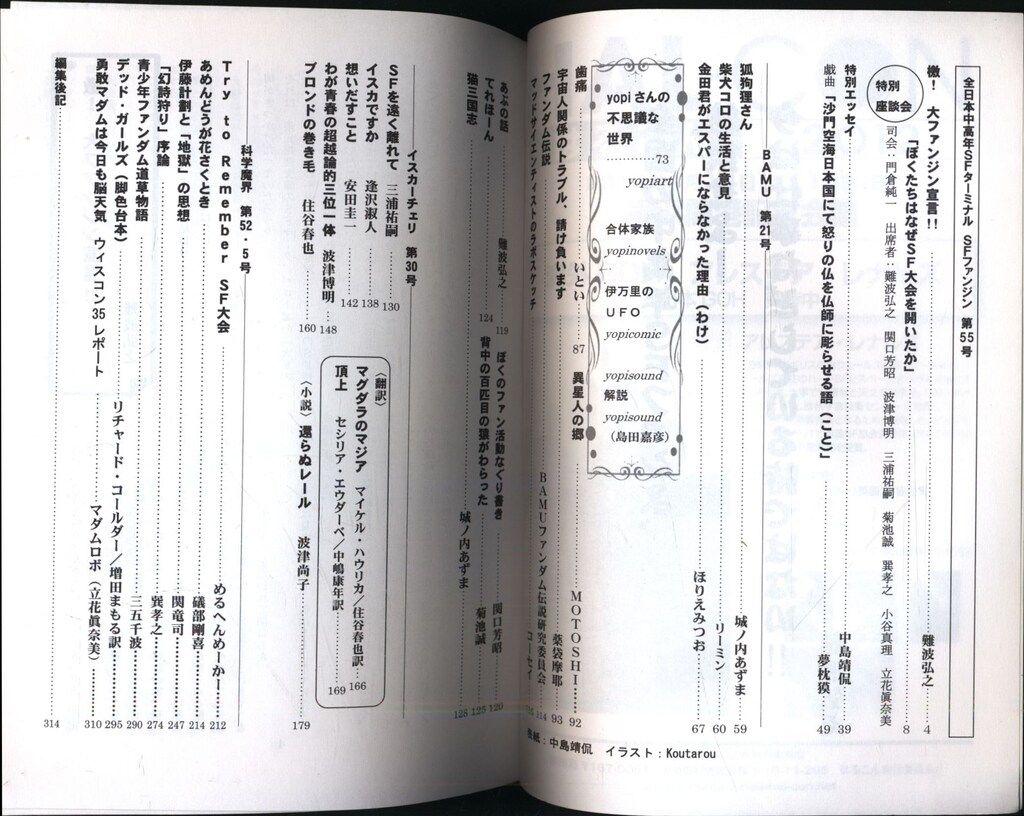 全日本中高年SFターミナル SFファンジン 第55号
檄! 大ファンジン宣言!! 難波弘之 4
特別座談会
「ぼくたちはなぜSF大会を開いたか」 8
司会:門倉純一 出席者:難波弘之 関口芳昭 波津博明 三浦祐嗣 菊池誠 巽孝之 小谷真理 立花眞奈美
特別エッセイ 中島靖侃 39
戯曲「沙門空海日本国にて怒りの仏を仏師に彫らせる語(こと)」 夢枕獏 49
BAMU 第21号
狐狗狸さん 城ノ内あずま 59
柴犬コロの生活と意見 リーミン 60
金田君がエスパーにならなかった理由(わけ) ほりえみつお 67
yopiさんの
不思議な
世界
……73
yopiart
合体家族
yopinovels
伊万里の
UFO
yopicomic
yopisound
解説
yopisound
(島田嘉彦)
歯痛 いとい 87
異星人の郷 MOTOSHI 92
宇宙人関係のトラブル、請け負います 薬袋摩耶 93
ファンダム伝説 BAMUファンダム伝説研究委員会 114
マッドサイエンティストのラボスケッチ コーセイ
表紙:中島靖侃 イラスト:Koutarou
あぶの話 難波弘之 119
ぼくのファン活動なぐり書き 関口芳昭 120
てれほーん 124
背中の百匹目の猿がわらった 菊池誠 125
猫三国志 城ノ内あずま 128
イスカーチェリ 第30号
SFを遠く離れて 三浦祐嗣 130
イスカですか 逢沢淑人 138
想いだすこと 安田圭一 142
わが青春の超越論的三位一体 波津博明 148
ブロンドの巻き毛 住谷春也 160
〈翻訳〉
マグダラのマジア マイケル・ハウリカ/住谷春也訳 166
頂上 セシリア・エウダーベ/中嶋康年訳 169
〈小説〉還らぬレール 波津尚子 179
科学魔界 第52・5号
Try to Remember SF大会 めるへんめーかー 212
あめんどうが花さくとき 礒部剛喜 214
伊藤計劃と「地獄」の思想 関竜司 247
「幻詩狩り」序論 巽孝之 274
青少年ファンダム道草物語 三五千波 290
デッド・ガールズ(脚色台本) リチャード・コールダー/増田まもる訳 295
勇敢マダムは今日も脳天気 ウィスコン35レポート マダムロボ(立花眞奈美) 310
編集後記 314